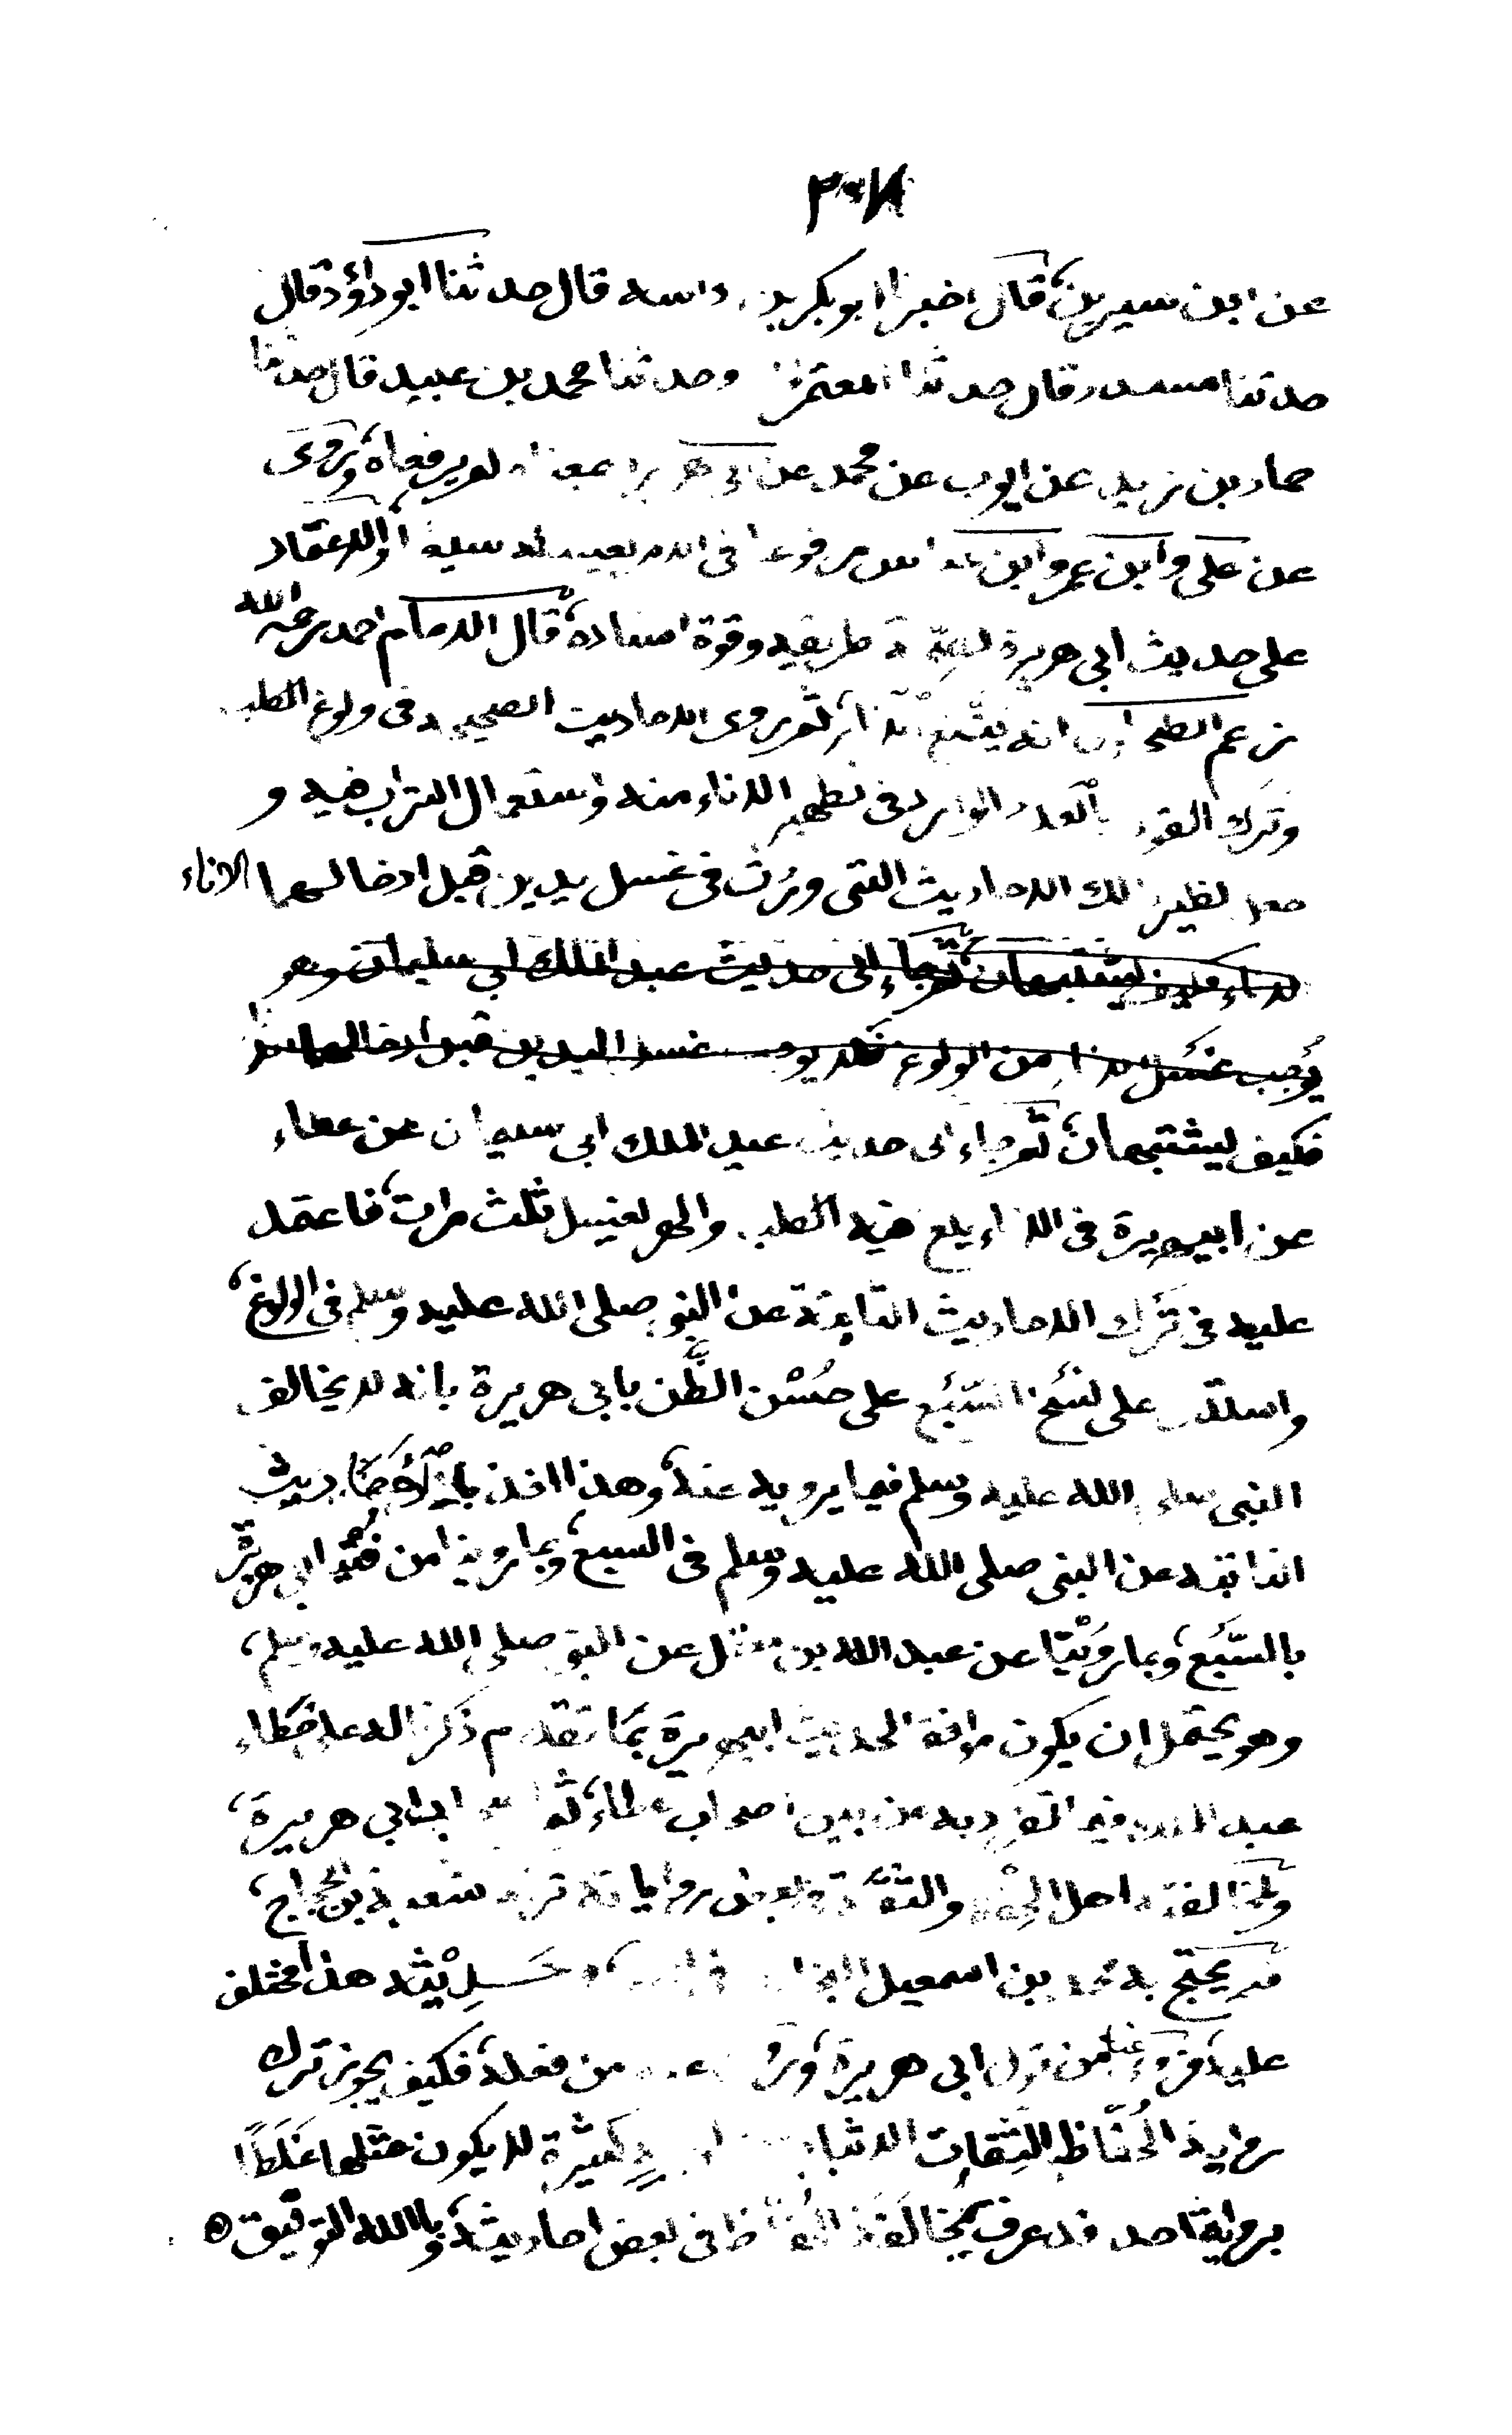 ٣٠٨
عن ابن سيرين، قال اخبرنا ابوبكر بن داسه قال حدثنا ابو داؤد قال
حدثنا مسدد قال حدثنا المعتمر وحدثنا محمد بن عبيد قال حدثنا
حماد بن زيد عن ايوب عن محمد عن ابي هريرة بمعناه لم يرفعاه، وروى
عن علي وابن عمر وابن عباس مرفوعا في الامر بغسله سبعا، والاعتماد
على حديث ابي هريرة لصحة طريقه وقوة اسناده، قال الامام احمد رحمه الله
زعم الطحاوي انه يتتبع الآثار ثم روى الاحاديث الصحيحة في ولوغ الكلب
وترك القول بالعدد الوارد في تطهير الاناء منه واستعمال التراب فيه و
لك الاحاديث التي وردت في غسل يدين قبل ادخالهما الاناء
فكيف يشتبهان ثم جاء الى حديث عبد الملك ابي سليمان وهو
يوجب غسل من الولوغ يوجب غسل اليدين قبل ادخالهما
فكيف يشتبهان، ثم جاء الى حديث عبد الملك ابي سليمان عن عطاء
عن ابيهريرة في الاناء يلغ فيه الكلب والهر يغسل ثلث مرات، فاعتمد
عليه في ترك الاحاديث الثابتة عن النبي صلى الله عليه وسلم في الولوغ،
واستدل على نسخ السبع على حسن الظن بابي هريرة بانه لا يخالف
النبي صلى الله عليه وسلم فيما يرويه عنه، وهذا اخذ بالاحاديث
الثابتة عن النبي صلى الله عليه وسلم في السبع، وبما روينا من فتيا ابي هريرة
بالسبع، وبما روينا عن عبد الله بن مغفل عن النبي صلى الله عليه وسلم،
وهو يحتمل ان يكون موافقة لحديث ابيهريرة بما تقدم ذكرنا له على خطاء
عبد الملك فيما تفرد به من بين اصحاب عطاء، ثم اصحاب ابي هريرة،
ولمخالفته اهل الحفظ والثقة في بعض رواياته تركه شعبة بن الحجاج،
ولم يحتج به محمد بن اسمعيل البخاري في الصحيح، وحديثه هذا مختلف
عليه، فروى عنه من قول ابي هريرة، وروى عنه من فعله، فكيف يجوز ترك
رواية الحفاظ الثقات الاثبات كثيرة لا يكون مثلها غلطا
برواية احد قد عرف بمخالفة الحفاظ في بعض احاديثه، وبالله التوفيق ه